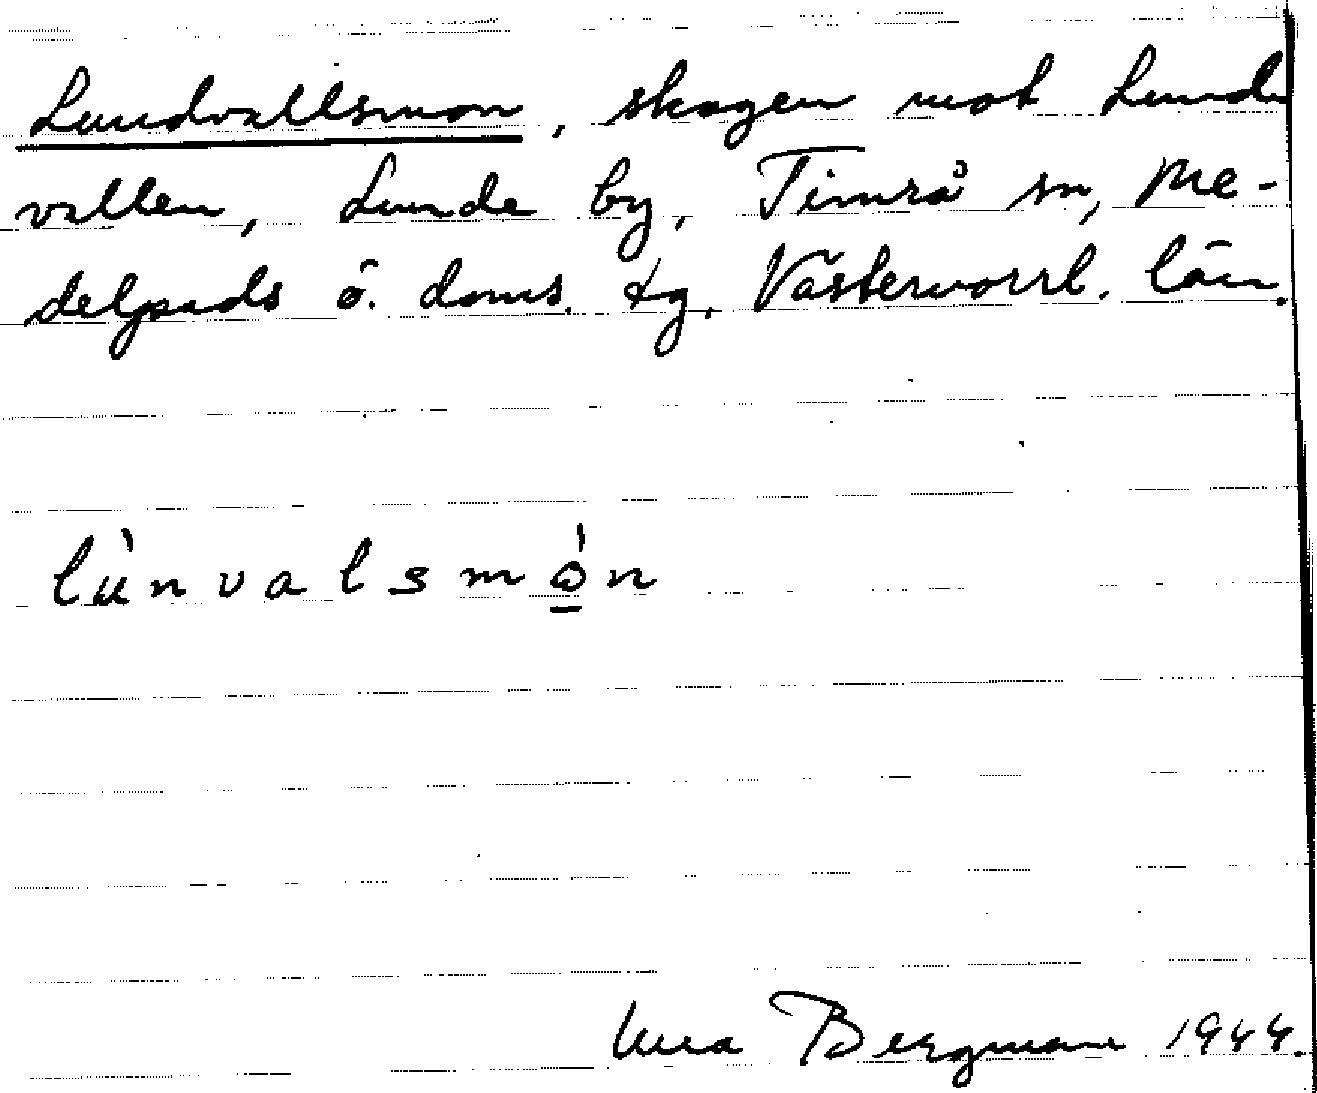 Lundvallsmon, skogen mot Lunde
vallen, Lunde by, Timrå sn, Me-
delpads ö. doms. tg, Västernorrl. län.
lùnvalsmo̠̍n
Una Bergman 1944.